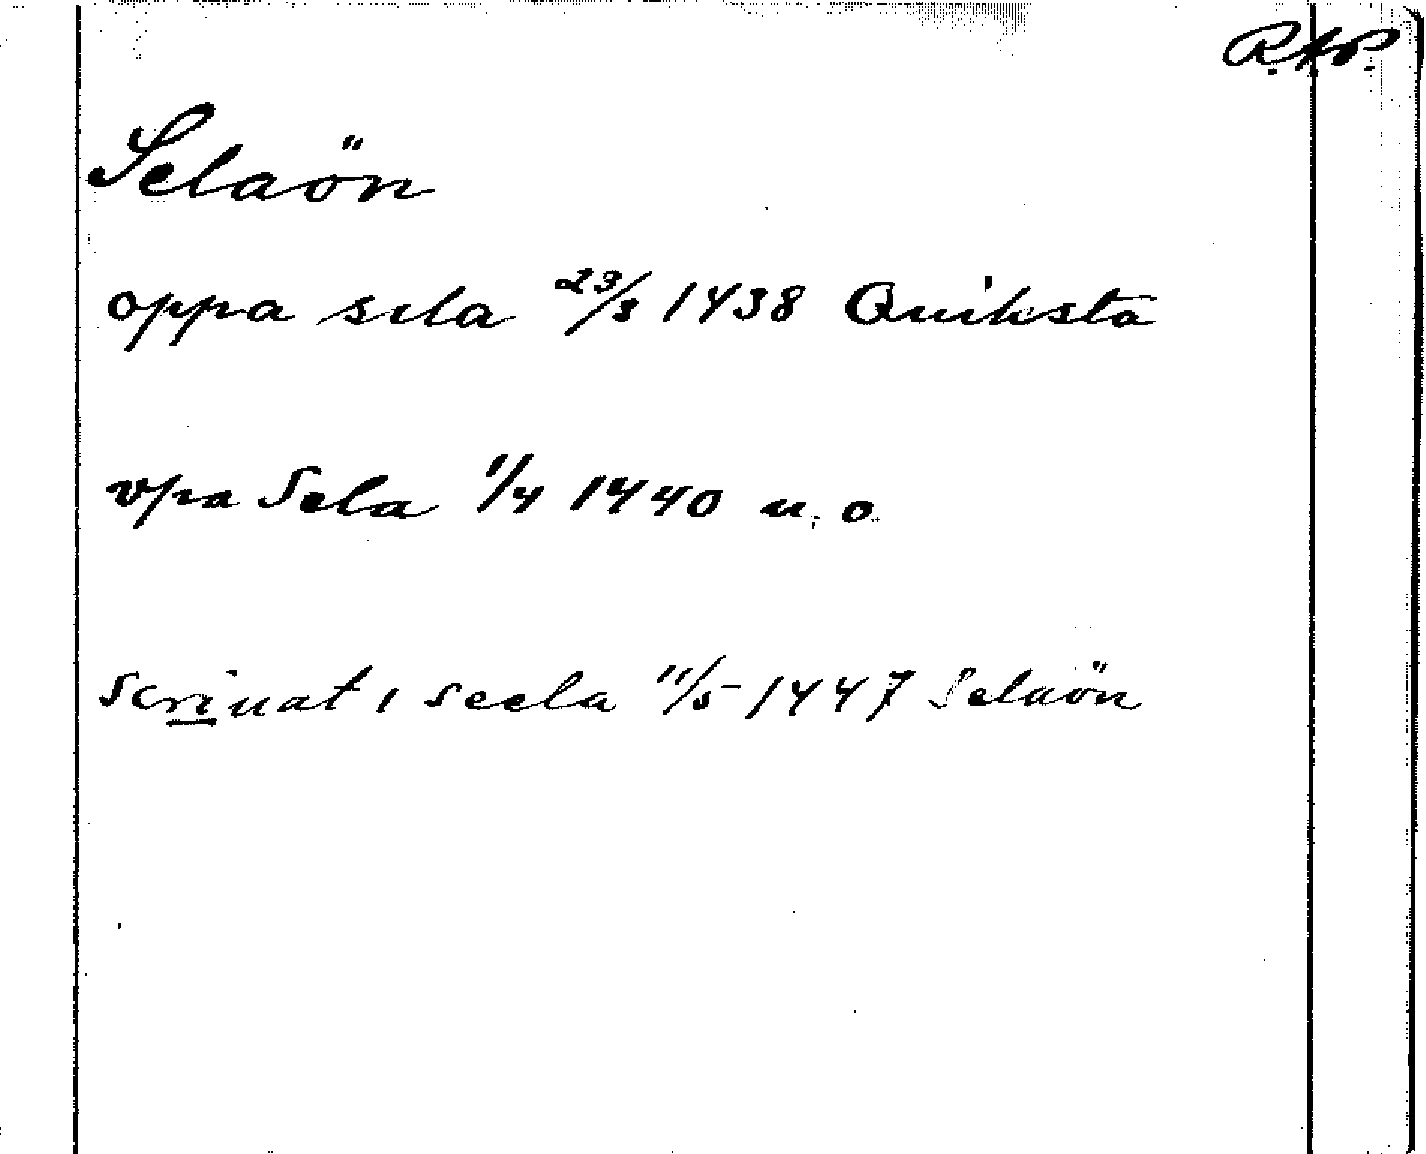 R.A.P.
Selaön
oppa sila 23/3 1438 Quiksta
vpa Sela 1/4 1440 u. o.
scriuat i seela 11/5 1447 Selaön